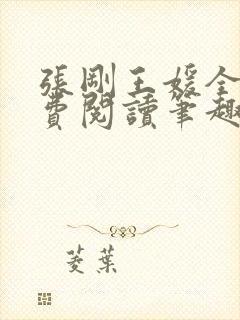 張剛王媛全
費閱讀筆趣
菱葉